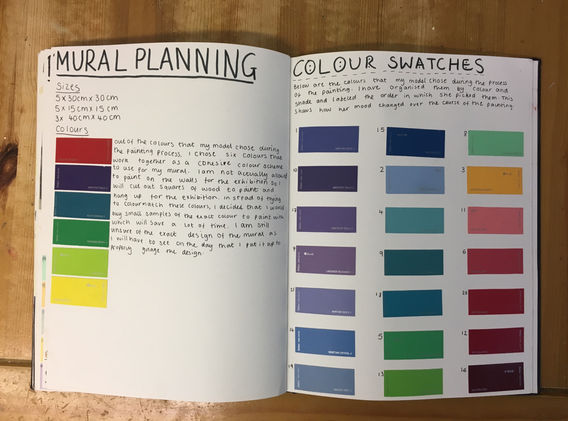 MURAL PLANNING
Sizes
5 x 30cm x 30cm
5 x 15cm x 15cm
3 x 40cm x 40cm
Colours
out of the colours that my model chose during
the painting process, I chose six colours that
work together as a cohesive colour scheme
to use for my mural. I am not actually allowed
to paint on the walls for the exhibition so I
will cut out squares of wood to paint and
hang up for the exhibition. instead of trying
to colourmatch these colours, I decided that I would
buy small samples of the exact colour to paint with
which will save a lot of time. I am still
unsure of the exact design of the mural as
I will have to see on the day that I put it up to
properly guage the design.
COLOUR SWATCHES
Below are the colours that my model chose during the process
of the painting. I have organised them by colour and
shade and labeled the order in which she picked them. This
shows how her mood changed over the course of the painting.
1
15
8
10
2
3
12
4
11
7
9
6
18
5
12
13
16